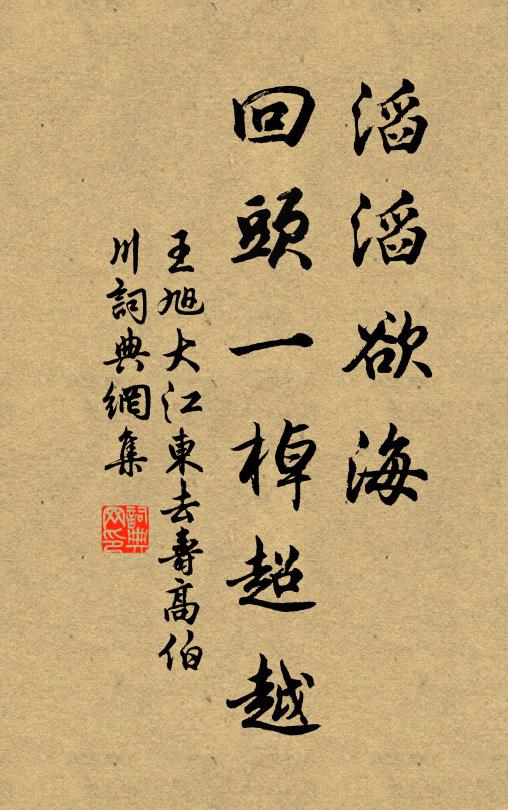 滔滔欲海
回頭一棹超越
王旭大江東去壽高伯
川詞典網集
詞典网印